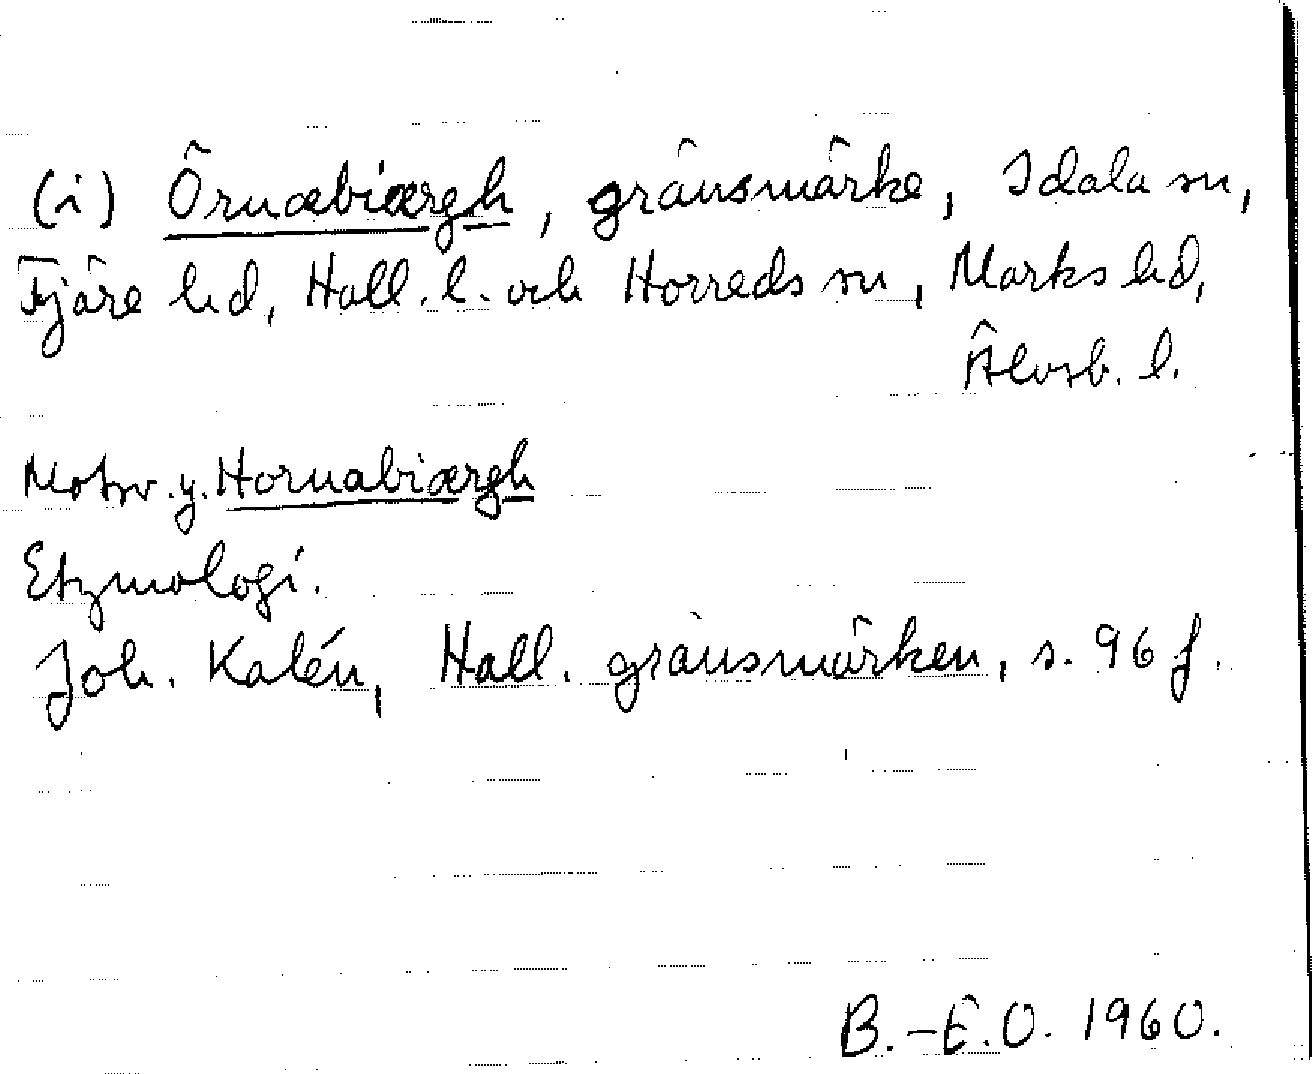 (i) Örnæbiærgh, gränsmärke, Idala sn,
Fjäre hd, Hall. l. och Horreds sn, Marks hd,
Älvsb. l.
Motsv. y. Hornabiærgh
Etymologi.
Joh. Kalén, Hall. gränsmärken, s. 96 f.
B.-E.O. 1960.